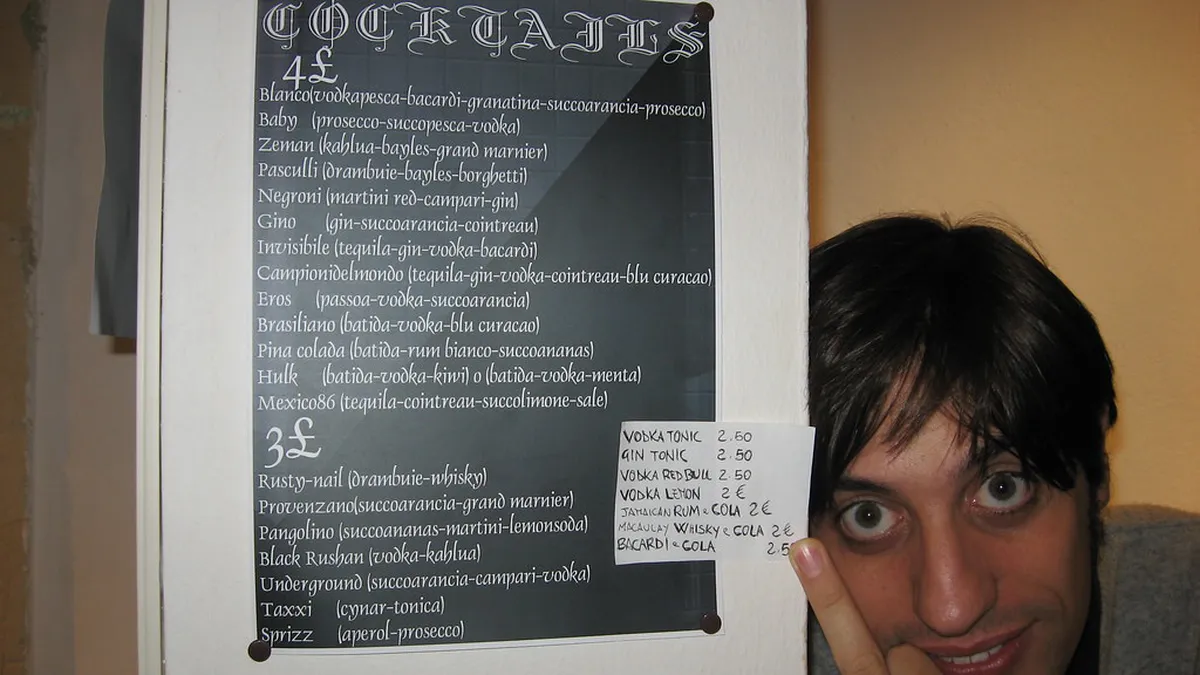 COCKTAILS
4£
Blanco(vodkapesca-bacardi-granatina-succoarancia-prosecco)
Baby (prosecco-succopesca-vodka)
Zeman (kahlua-bayles-grand marnier)
Pasculli (drambuie-bayles-borghetti)
Negroni (martini red-campari-gin)
Gino (gin-succoarancia-cointreau)
Invisibile (tequila-gin-vodka-bacardi)
Campionidelmondo (tequila-gin-vodka-cointreau-blu curacao)
Eros (passoa-vodka-succoarancia)
Brasiliano (batida-vodka-blu curacao)
Pina colada (batida-rum bianco-succoananas)
Hulk (batida-vodka-kiwi) o (batida-vodka-menta)
Mexico86 (tequila-cointreau-succolimone-sale)
3£
Rusty-nail (drambuie-whisky)
Provenzano(succoarancia-grand marnier)
Pangolino (succoananas-martini-lemonsoda)
Black Rushan (vodka-kahlua)
Underground (succoarancia-campari-vodka)
Taxxi (cynar-tonica)
Sprizz (aperol-prosecco)
VODKA TONIC 2.50
GIN TONIC 2.50
VODKA RED BULL 2.50
VODKA LEMON 2€
JAMAICAN RUM e COLA 2€
MACAULAY WHISKY e COLA 2€
BACARDI e COLA 2.5